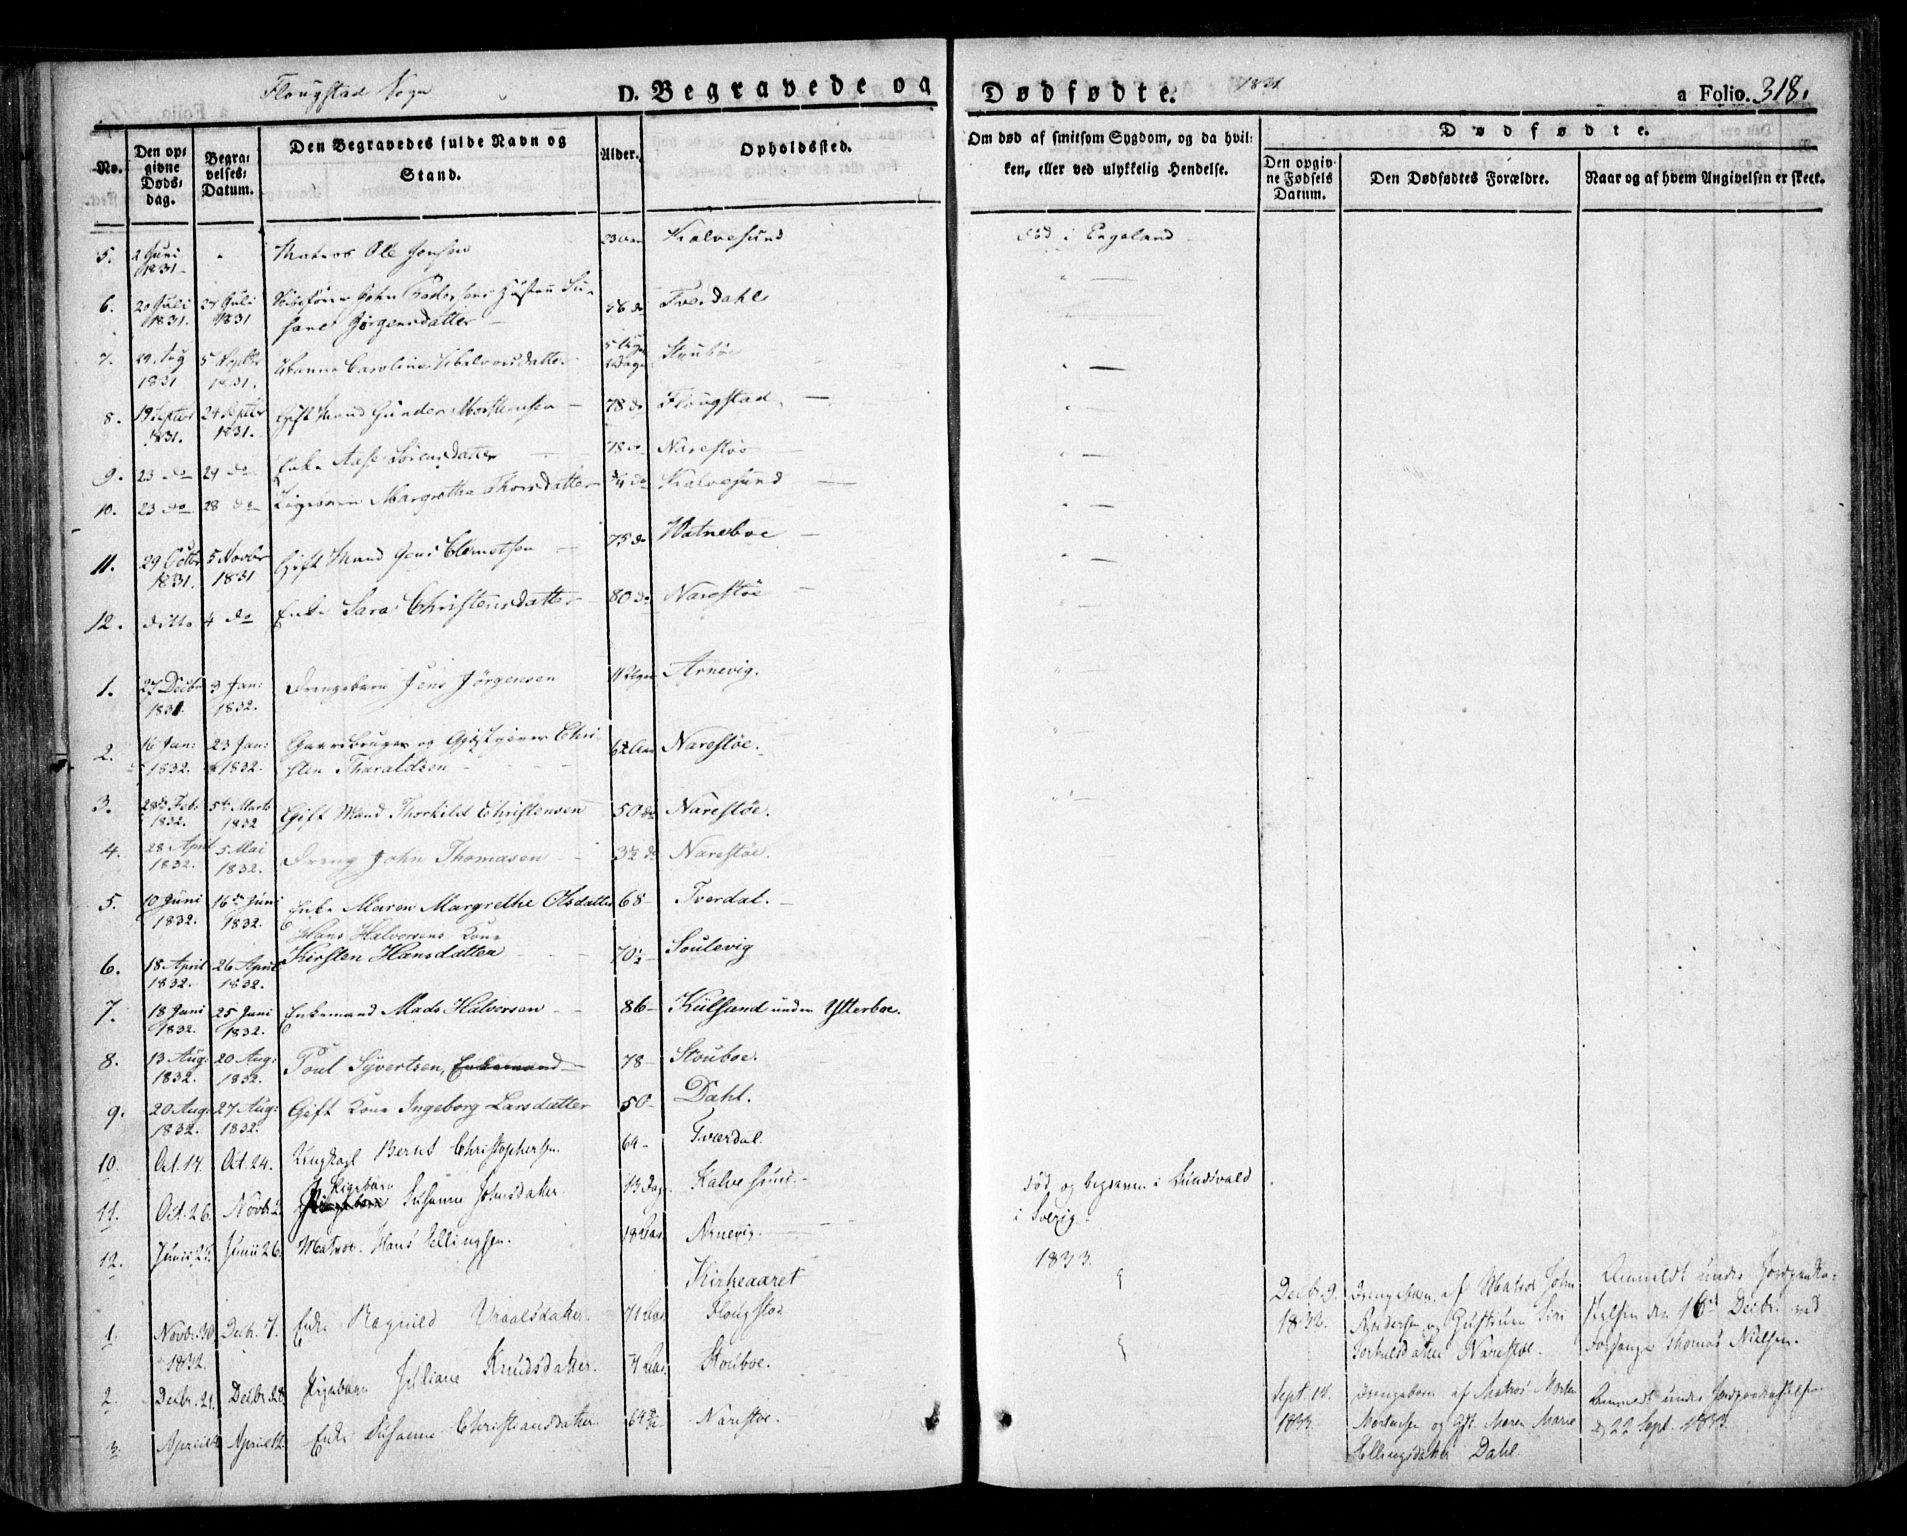 Flougstad Sogn
D. Begravede og Dødfødte.
1831
a Folio. 318.
No.
Den op-
givne
Døds-
dag.
Begra-
velses-
Datum.
Den Begravedes fulde Navn og
Stand.
Alder.
Opholdssted.
Om død af smitsom Sygdom, og da hvil-
ken, eller ved ulykkelig Hendelse.
Dødfødte.
Den opgiv-
ne Fødsels
Datum.
Den Dødfødtes Forældre.
Naar og af hvem Angivelsen er skeet.
5. 2 Juni Matros Ole Jensen 23 Aar Kalvesund død i Engeland
1831
6. 20 Juli Juli John
1831. 1831 Jørgensdatter Tverdahl
7. 29 Aug 5 Septbr Hanne Caroline Halvorsdatter Stouboe
1831 1831.
8. 19 Septbr 24 Septbr Gift Mand Gunder Mortensen 78 do Flougstad
1831. 1831.
9. 23 do 29 do Enke Aase Sørensdatter 78 do Narestøe
10. 23 do 28 do Pigebarn Margrethe Thorsdatter Kalvesund
11. 29 Octbr 5 Novbr Gift Mand Jens Clemetsen 75 do Watneboe
1831. 1831
12. ditto 4 do Enke Sara Christensdatter 80 do Narestöe
1. 27 Decbr 3 Jan: Drengebarn Jens Jörgensen Arnevig.
1831. 1832.
2. 16 Jan: 23 Jan: Gaardbruger og Gjæstgiver Chri-
1832. 1832. sten Tharaldsen Narestöe.
3. 28de Feb: 5te Marts Gift Mand Thorkild Christensen 50 do Narestöe.
1832. 1832
4. 28 April 5 Mai Dreng John Thomasen 3½ do Narestöe.
1832. 1832.
5. 10 Juni 16de Juni Enke Maren Margrethe Olsdatter 68 Tverdal.
1832. 1832.
Hans Halvorsens Kone
6. 18 April 26 April Kirsten Hansdatter 70½ Soulevig
1832. 1832.
7. 18 Juni 25 Juni Enkemand Mads Halvorsen 86 Külsund under Ytterboe.
1832. 1832.
8. 13 Aug: 20 Aug: Poul Syvertsen, Enkemand 78 Stouboe.
1832. 1832.
9. 20 Aug: 27 Aug: Gift Kone Ingeborg Larsdatter 50 Dahl.
1832. 1832.
10. Oct. 17. Oct. 24. Ungkarl Bernt Christophersen. 64 Tverdal.
11. Oct. 26. Novbr. 2. Pigebarn Susanne Johnsdatter 13 Dage Kalvesund.
død og begraven i Sundsvald
i Sverig.
12. Junii Junii 26. Matros Hans Ellingsen. 18 Aar Arnevig.
1833.
Kirkeaaret
1. Novbr. 30 Decbr. 7. Enke Ragnild Oraalsdatter 71 Aar Flougstad
1832.
2. Decbr. 21. Decbr. 28 Pigebarn Juliane Knudsdatter. Stouboe.
3. April April 12. Enke Susanne Christiansdatter 64 Narestøe.
Decbr. 9.
1832.
Drengebarn af Matros John
Andersen og Hustrue Siri
Torkelsdatter Narestøe.
Anmeldt under Jordpaaka-
stelsen den 16de Decbr. ved
Forsanger Thomas Nielsen.
Sept. 18.
1833.
Drengebarn af Matros Morten
Mortensen og Maren Marie
Ellingsdatter Dahl.
Anmeldt under Jordpaakastelsen
22 Sept. 1833.